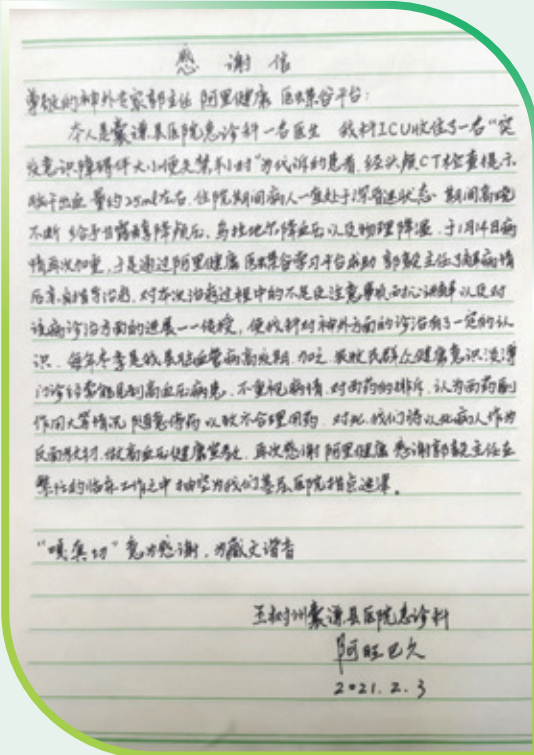 感谢信
尊敬的神外专家郭主任 阿里健康 医蝶谷平台：
本人是囊谦县医院急诊科一名医生 我科ICU收住了一名“突
发意识障碍伴大小便失禁半小时”为代诉的患者，经头颅CT检查提示
脑干出血 量约25ml左右，住院期间病人一直处于深昏迷状态，期间高烧
不断 给予甘露醇降颅压，乌拉地尔降血压以及物理降温，于1月14日病
情再次加重，于是通过阿里健康医蝶谷学习平台求助 郭毅主任了解病情
后亲自指导治疗，对本次治疗过程中的不足及注意事项耐心讲解以及对
该病诊治方面的进展一一传授，使我科对神外方面的诊治有了一定的认
识，每年冬季是我县脑血管病高发期，加之 农牧民群众健康意识浅薄
门诊经常能见到高血压病患，不重视病情，对西药的排斥，认为西药副
作用大等情况 随意停药 以致不合理用药，对此，我们将以此病人作为
反面教材，做高血压健康宣教，再次感谢 阿里健康 感谢郭毅主任在
繁忙的临床工作之中 抽空为我们基层医院指点迷津。
“嘎真切”意为感谢，为藏文谐音
玉树州囊谦县医院急诊科
阿旺巴久
2021.2.3